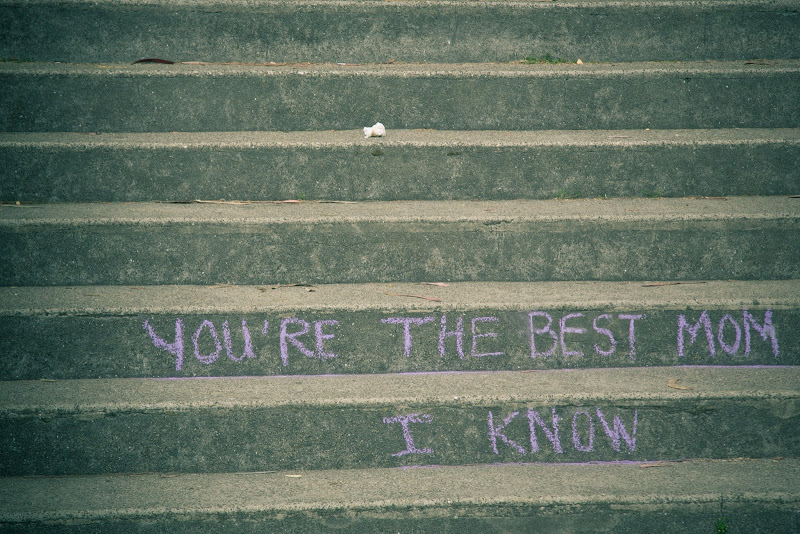 YOU'RE THE BEST MOM
I KNOW